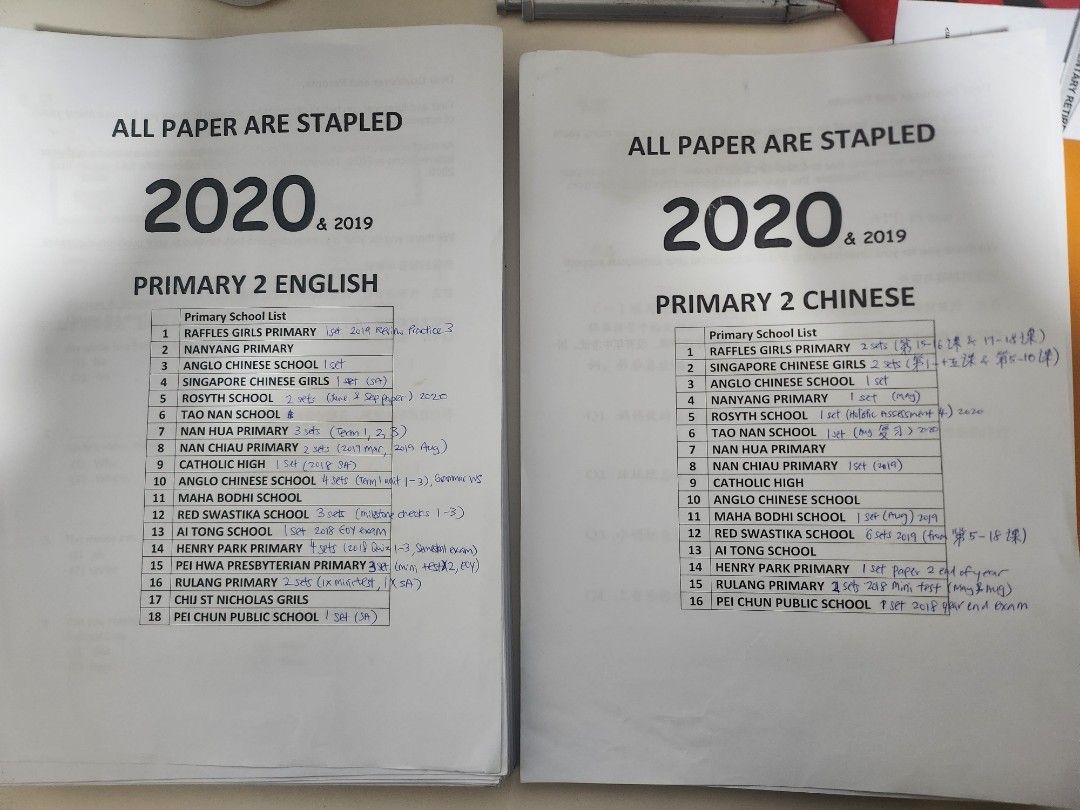 ALL PAPER ARE STAPLED
2020 & 2019
PRIMARY 2 ENGLISH
Primary School List
1 RAFFLES GIRLS PRIMARY 1 set 2019 Review Practice 3
2 NANYANG PRIMARY
3 ANGLO CHINESE SCHOOL 1 set
4 SINGAPORE CHINESE GIRLS 1 set (SA)
5 ROSYTH SCHOOL 2 sets (June & Sep paper) 2020
6 TAO NAN SCHOOL
7 NAN HUA PRIMARY 3 sets (Term 1, 2, 3)
8 NAN CHIAU PRIMARY 2 sets (2019 Mar, 2019 Aug)
9 CATHOLIC HIGH 1 set (2018 SA)
10 ANGLO CHINESE SCHOOL 4 sets (Term 1 unit 1-3), Grammar WS
11 MAHA BODHI SCHOOL
12 RED SWASTIKA SCHOOL 3 sets (milestone checks 1-3)
13 AI TONG SCHOOL 1 set 2018 EOY exam
14 HENRY PARK PRIMARY 4 sets (2018 Quiz 1-3, Semestral exam)
15 PEI HWA PRESBYTERIAN PRIMARY 3 set (mini test X2, EOY)
16 RULANG PRIMARY 2 sets (1x mini test, 1X SA)
17 CHIJ ST NICHOLAS GRILS
18 PEI CHUN PUBLIC SCHOOL 1 set (SA)
ALL PAPER ARE STAPLED
2020 & 2019
PRIMARY 2 CHINESE
Primary School List
1 RAFFLES GIRLS PRIMARY 2 sets (第15-16课 & 17-18课)
2 SINGAPORE CHINESE GIRLS 2 sets (第1-十五课 & 第5-10课)
3 ANGLO CHINESE SCHOOL 1 set
4 NANYANG PRIMARY 1 set (May)
5 ROSYTH SCHOOL 1 set (Holistic Assessment 4) 2020
6 TAO NAN SCHOOL 1 set (Aug 复习) 2020
7 NAN HUA PRIMARY
8 NAN CHIAU PRIMARY 1 set (2019)
9 CATHOLIC HIGH
10 ANGLO CHINESE SCHOOL
11 MAHA BODHI SCHOOL 1 set (Aug) 2019
12 RED SWASTIKA SCHOOL 6 sets 2019 (from 第5-18课)
13 AI TONG SCHOOL
14 HENRY PARK PRIMARY 1 set paper 2 end of year
15 RULANG PRIMARY 2 sets 2018 Mini test (May & Aug)
16 PEI CHUN PUBLIC SCHOOL 1 set 2018 year end exam